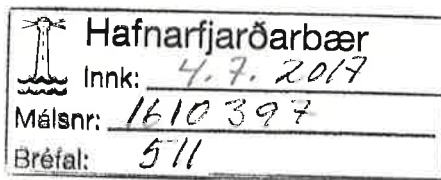 Hafnarfjarðarbær
Innk: 4.7.2017
Málsnr: 1610397
Bréfal: 511